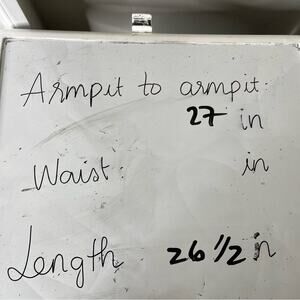 Armpit to armpit:
27 in
Waist: in
Length 26 1/2 in